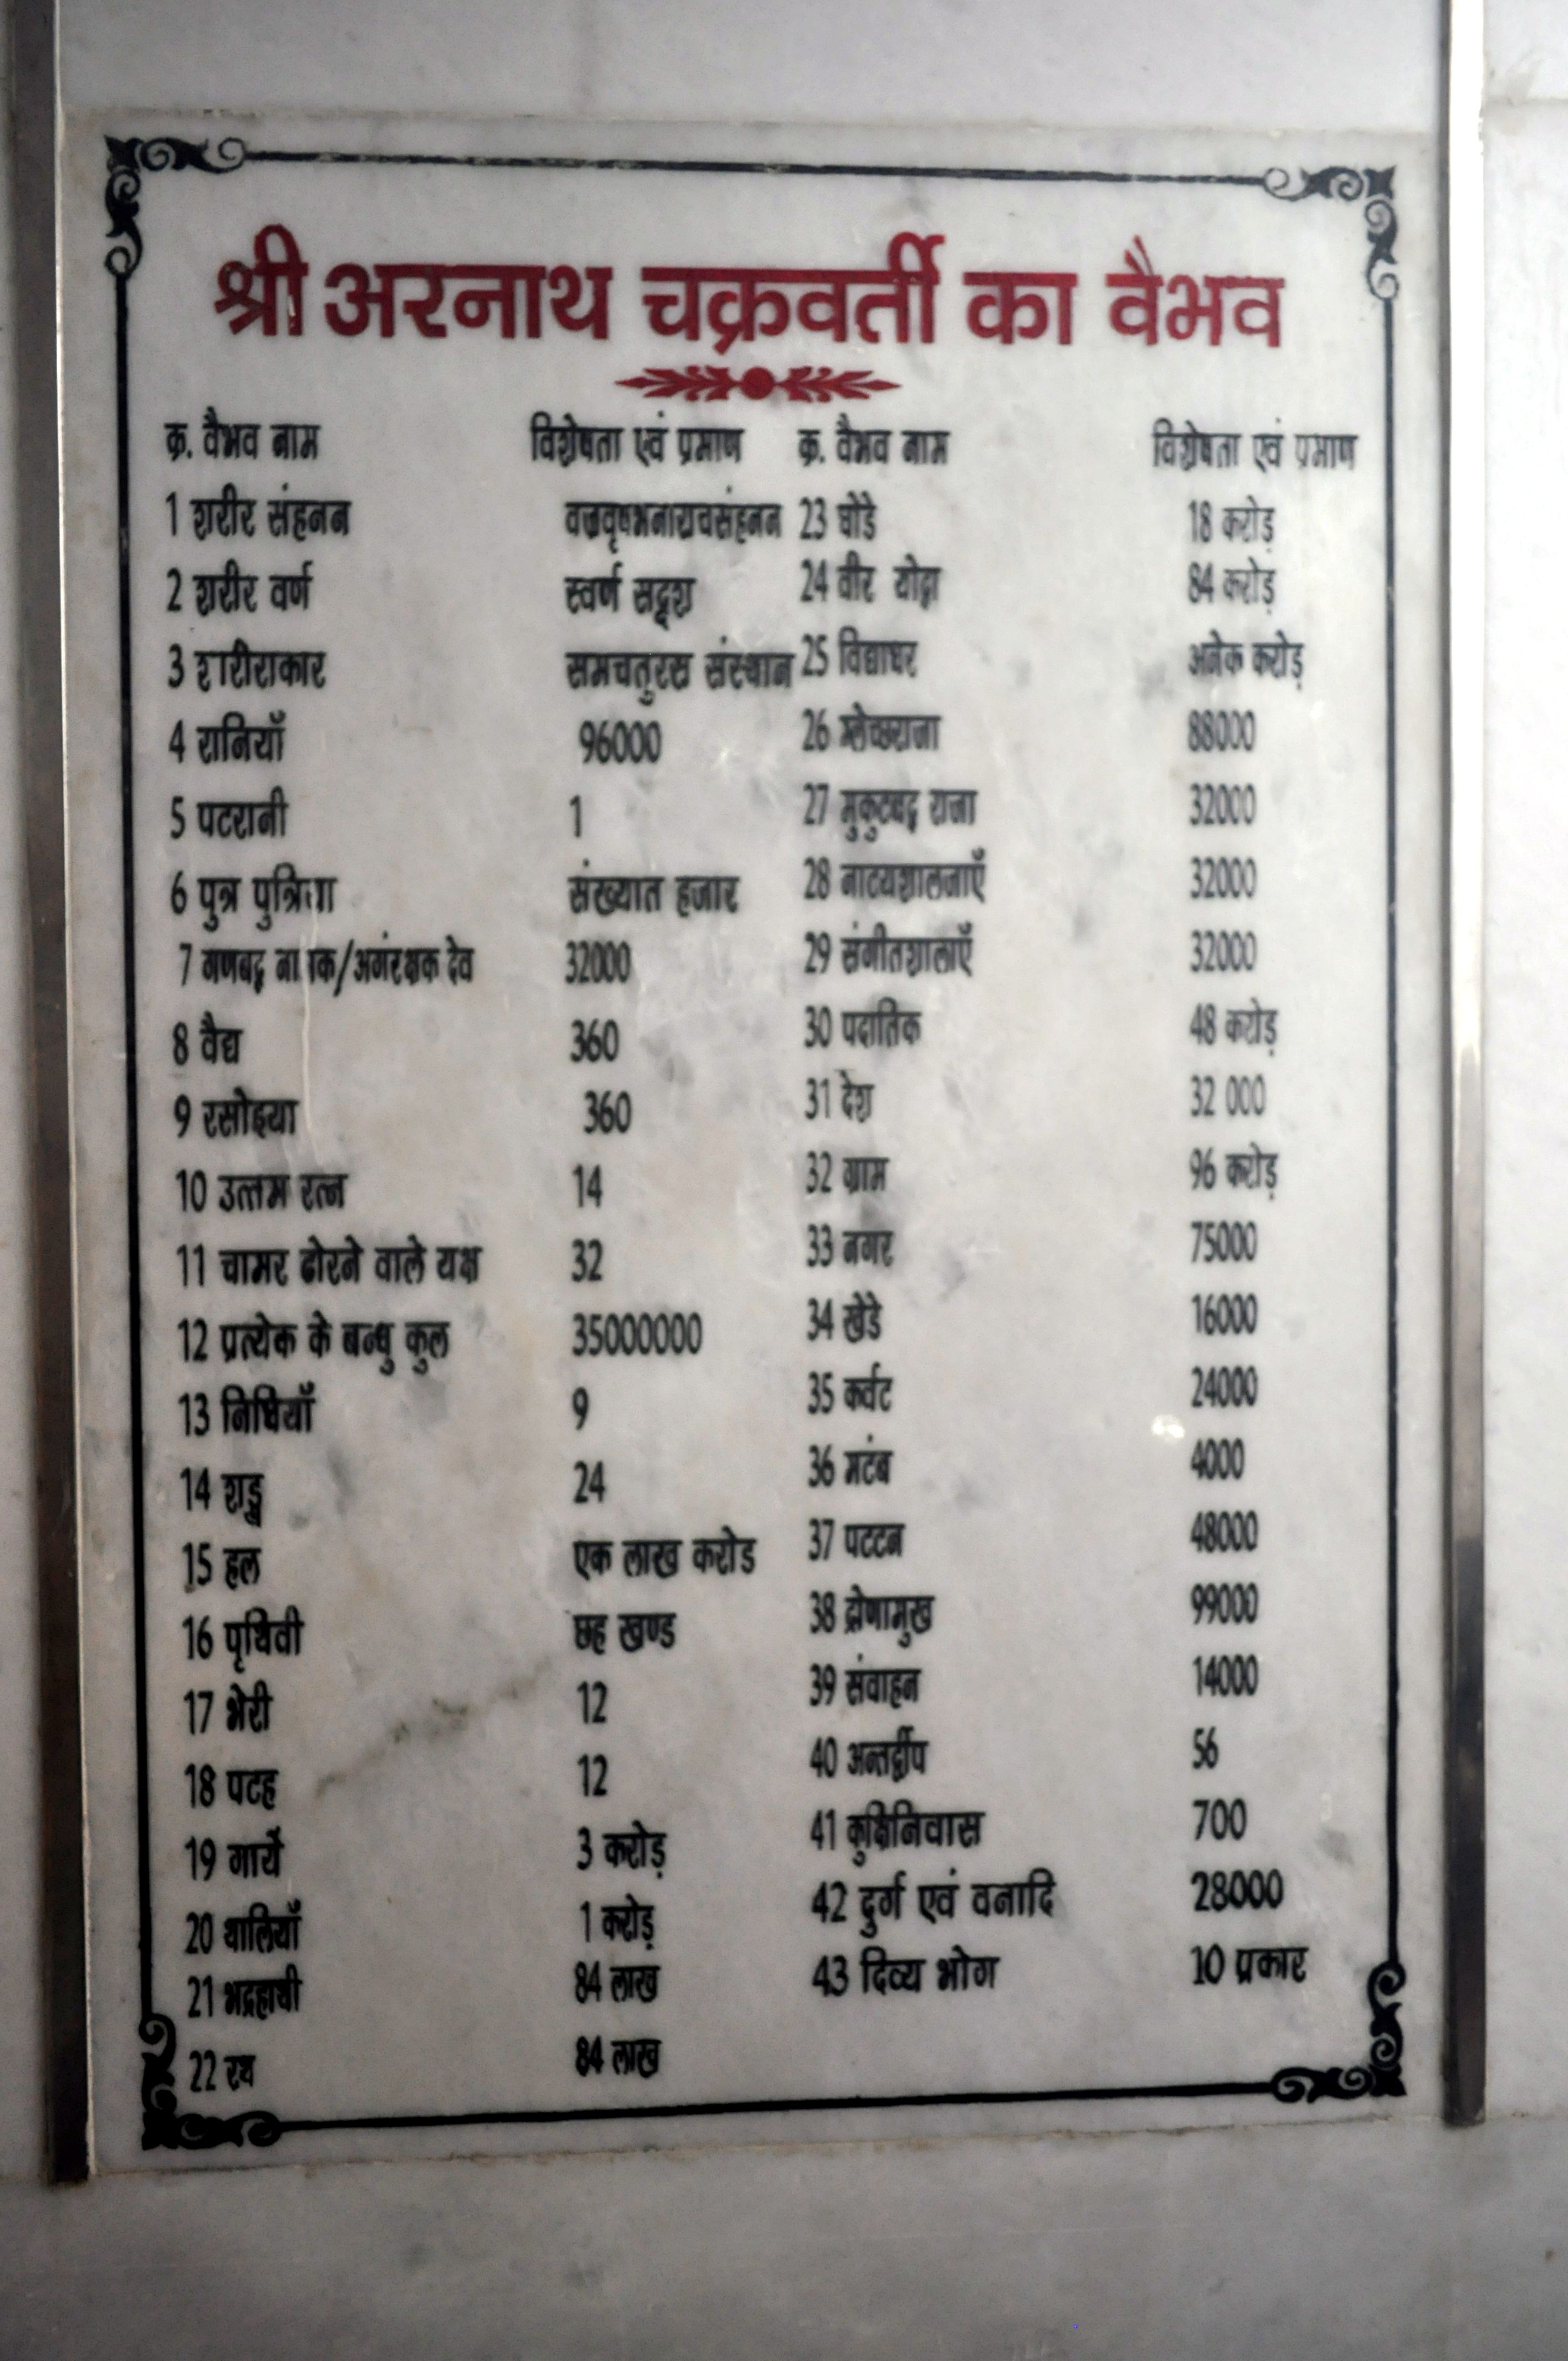 श्री अरनाथ चक्रवर्ती का वैभव
क्र. वैभव नाम विशेषता एवं प्रमाण
1 शरीर संहनन वज्रवृषभनाराचसंहनन
2 शरीर वर्ण स्वर्ण सदृश
3 शरीराकार समचतुरस संस्थान
4 रानियाँ 96000
5 पटरानी 1
6 पुत्र पुत्रिया संख्यात हजार
7 गणबद्ध /अगंरक्षक देव 32000
8 वैद्य 360
9 रसोइया 360
10 उत्तम रत्न 14
11 चामर ढोरने वाले यक्ष 32
12 प्रत्येक के बन्धु कुल 35000000
13 निधियाँ 9
14 24
15 हल एक लाख करोड
16 पृथिवी छह खण्ड
17 भेरी 12
18 पटह 12
19 गायें 3 करोड़
20 थालियाँ 1 करोड़
21 भद्रहाथी 84 लाख
22 रथ 84 लाख
क्र. वैभव नाम विशेषता एवं प्रमाण
23 घोडे 18 करोड़
24 वीर योद्धा 84 करोड़
25 विद्याधर अनेक करोड़
26 म्लेच्छराजा 88000
27 मुकुटबद्ध राजा 32000
28 नाटयशालनाएँ 32000
29 संगीतशालाएँ 32000
30 पदातिक 48 करोड़
31 देश 32 000
32 ग्राम 96 करोड़
33 नगर 75000
34 खेडे 16000
35 कर्वट 24000
36 मटंब 4000
37 पटटन 48000
38 द्रोणामुख 99000
39 संवाहन 14000
40 अन्तर्द्वीप 56
41 कुक्षिनिवास 700
42 दुर्ग एवं वनादि 28000
43 दिव्य भोग 10 प्रकार